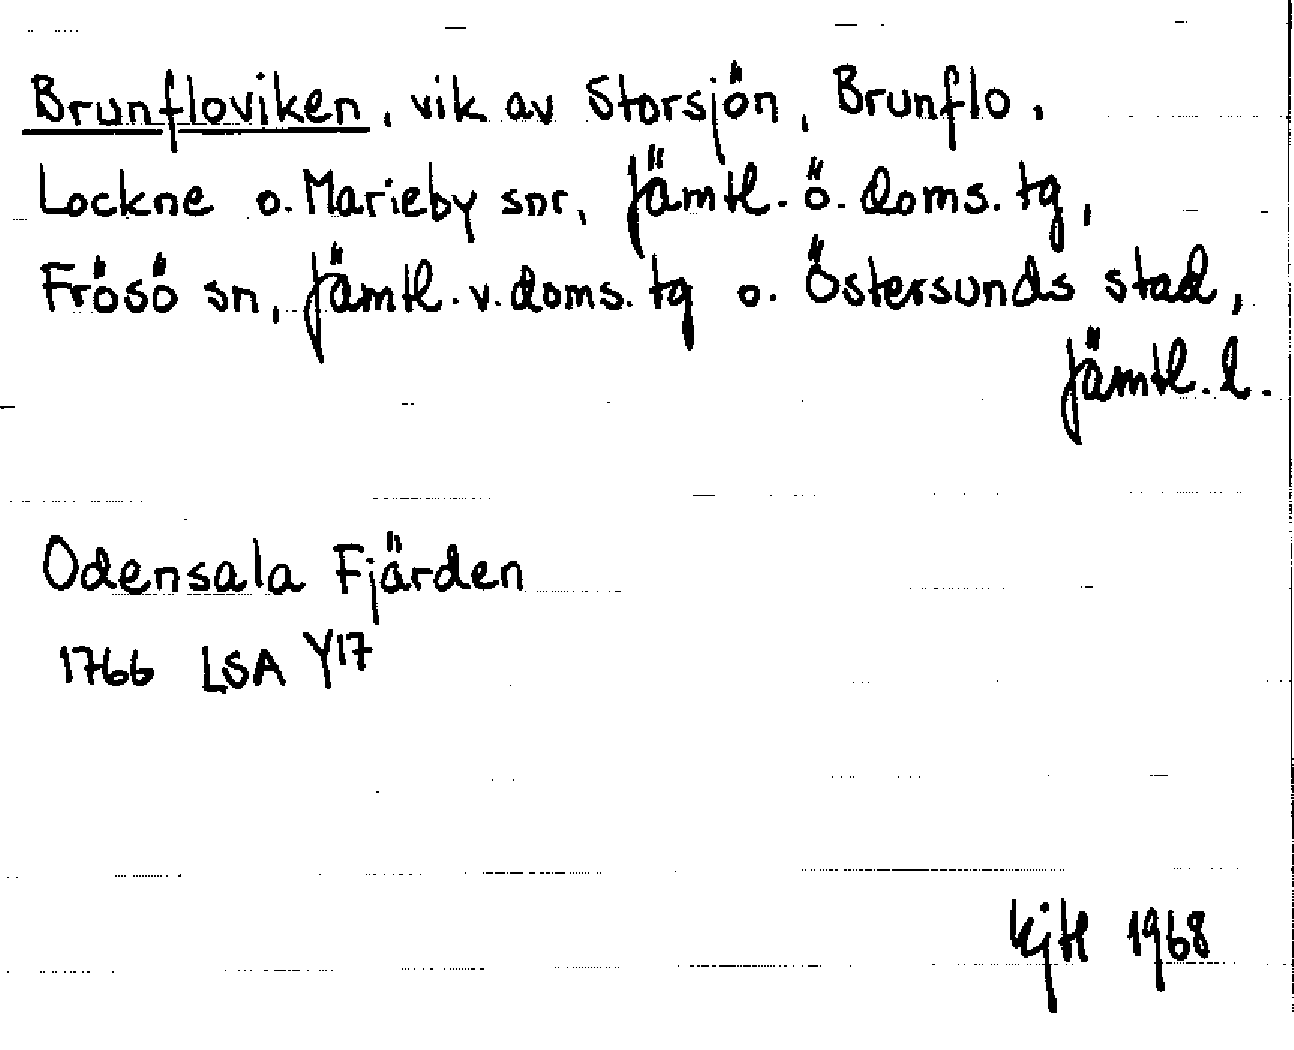 Brunfloviken, vik av Storsjön, Brunflo.
Lockne o. Marieby snr, Jämtl. ö. doms. tg,
Frösö sn, Jämtl. v. doms. tg o. Östersunds stad,
Jämtl. l.
Odensala Fjärden
1766 LSA Y17
KjH 1968